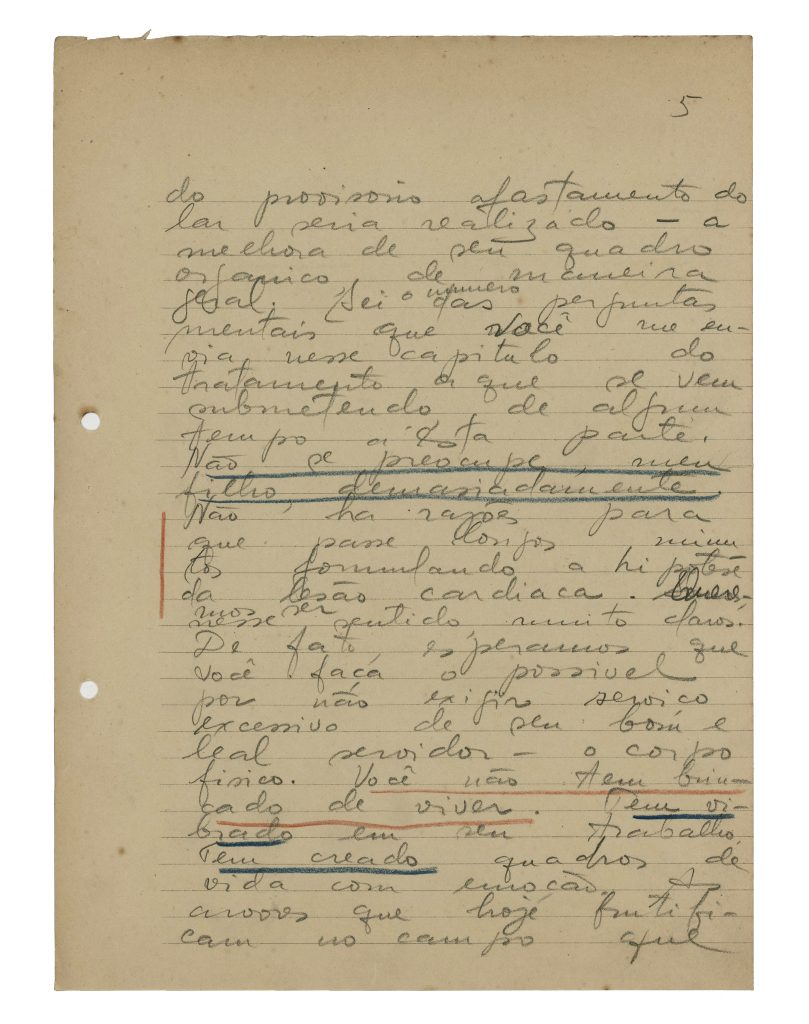 5
do provisorio afastamento do
lar seria realizado – a
melhora de seu quadro
organico, de maneira
geral. Sei o numero das perguntas
mentais que você me en-
via nesse capitulo do
tratamento a que se vem
submetendo de algum
tempo a esta parte.
Não se preocupe, meu
filho, demasiadamente.
Não ha rasões para
que passe longos minu
tos formulando a hipotese
da lesão cardiaca. Quere-
mos ser
nesse sentido, muito claros.
De fato, esperamos que
você faça o possivel
por não exigir serviço
excessivo de seu bom e
leal servidor – o corpo
fisico. Você não tem brin-
cado de viver. Tem vi-
brado em seu trabalho.
Tem creado quadros de
vida com emoção. As
arvores que hoje frutifi-
cam no campo que